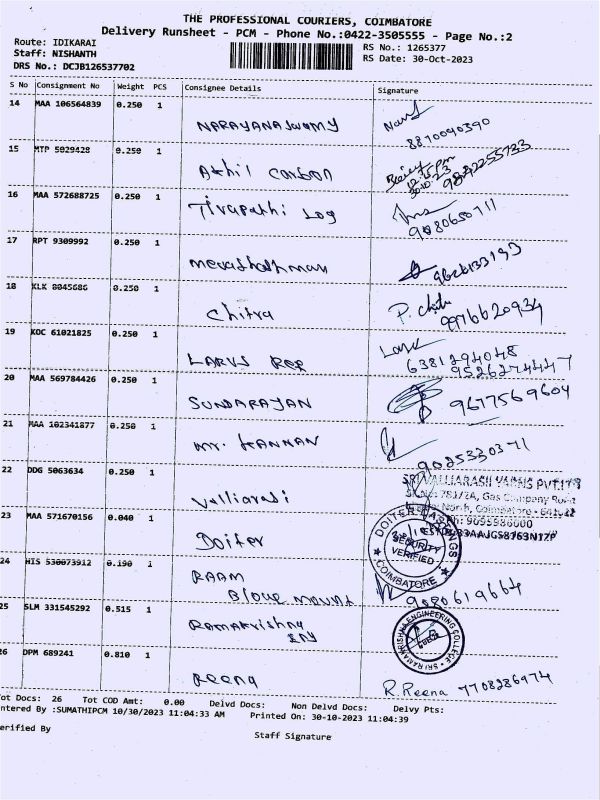 THE PROFESSIONAL COURIERS, COIMBATORE
Delivery Runsheet - PCM - Phone No.:0422-3505555 - Page No.:2
Route: IDIKARAI
RS No.: 1265377
Staff: NISHANTH
RS Date: 30-Oct-2023
DRS No.: DCJB126537702
S No Consignment No Weight PCS Consignee Details Signature
14 MAA 106564839 0.250 1 NARAYANASWAMY
8870040390
15 MTP 5029428 0.250 1 Akhil Carbon
12:15 pm
30.10.23 9842255733
16 MAA 572688725 0.250 1 Tirupathi Log
9080650711
17 RPT 9309992 0.250 1
9626133193
18 KLK 8045686 0.250 1 Chitra P. Chitra
9976620934
19 KOC 61021825 0.250 1 LARVS
6381294048
9526274447
20 MAA 569784426 0.250 1 SUNDARAJAN 9677569604
21 MAA 102341877 0.250 1 Mr. KANNAN
9025330371
22 DDG 5063634 0.250 1 Valliarasi
SRI VALLIARASII YARNS PVT LTD
Gas Company Road
Coimbatore - 641022
Ph: 9095986000
23 MAA 571670156 0.040 1 Doifer
DOITER CASTINGS
SECURITY
VERIFIED
COIMBATORE
24 HIS 530073912 0.190 1 RAAM
9080619664
25 SLM 331545292 0.515 1 Ramakrishna
Eng
SRI RAMAKRISHNA ENGINEERING COLLEGE
26 DPM 689241 0.810 1 Reena R. Reena 7708286974
Tot Docs: 26 Tot COD Amt: 0.00 Delvd Docs: Non Delvd Docs: Delvy Pts:
ntered By :SUMATHIPCM 10/30/2023 11:04:33 AM Printed On: 30-10-2023 11:04:39
erified By
Staff Signature